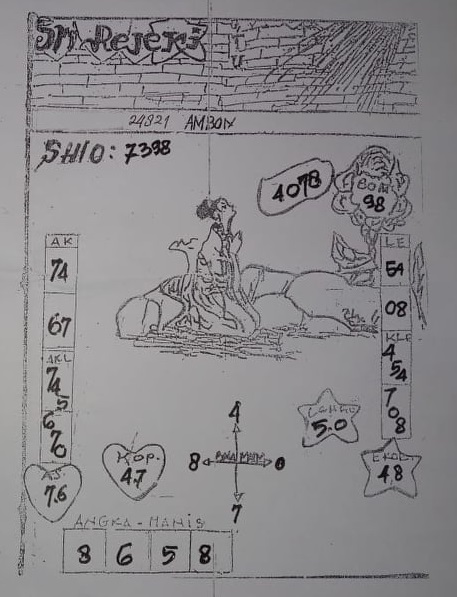 Sri Rejeki
24921 AMBON
SHIO: 7398
4078
BOM
98
AK
74
67
AKL
74
5
6
70
AS.
7.6
KOP.
4.7
LE
54
08
KLE
4
54
7
08
5.0
EKOR
4.8
4
8
0
7
ANGKA-MANIS
8 6 5 8